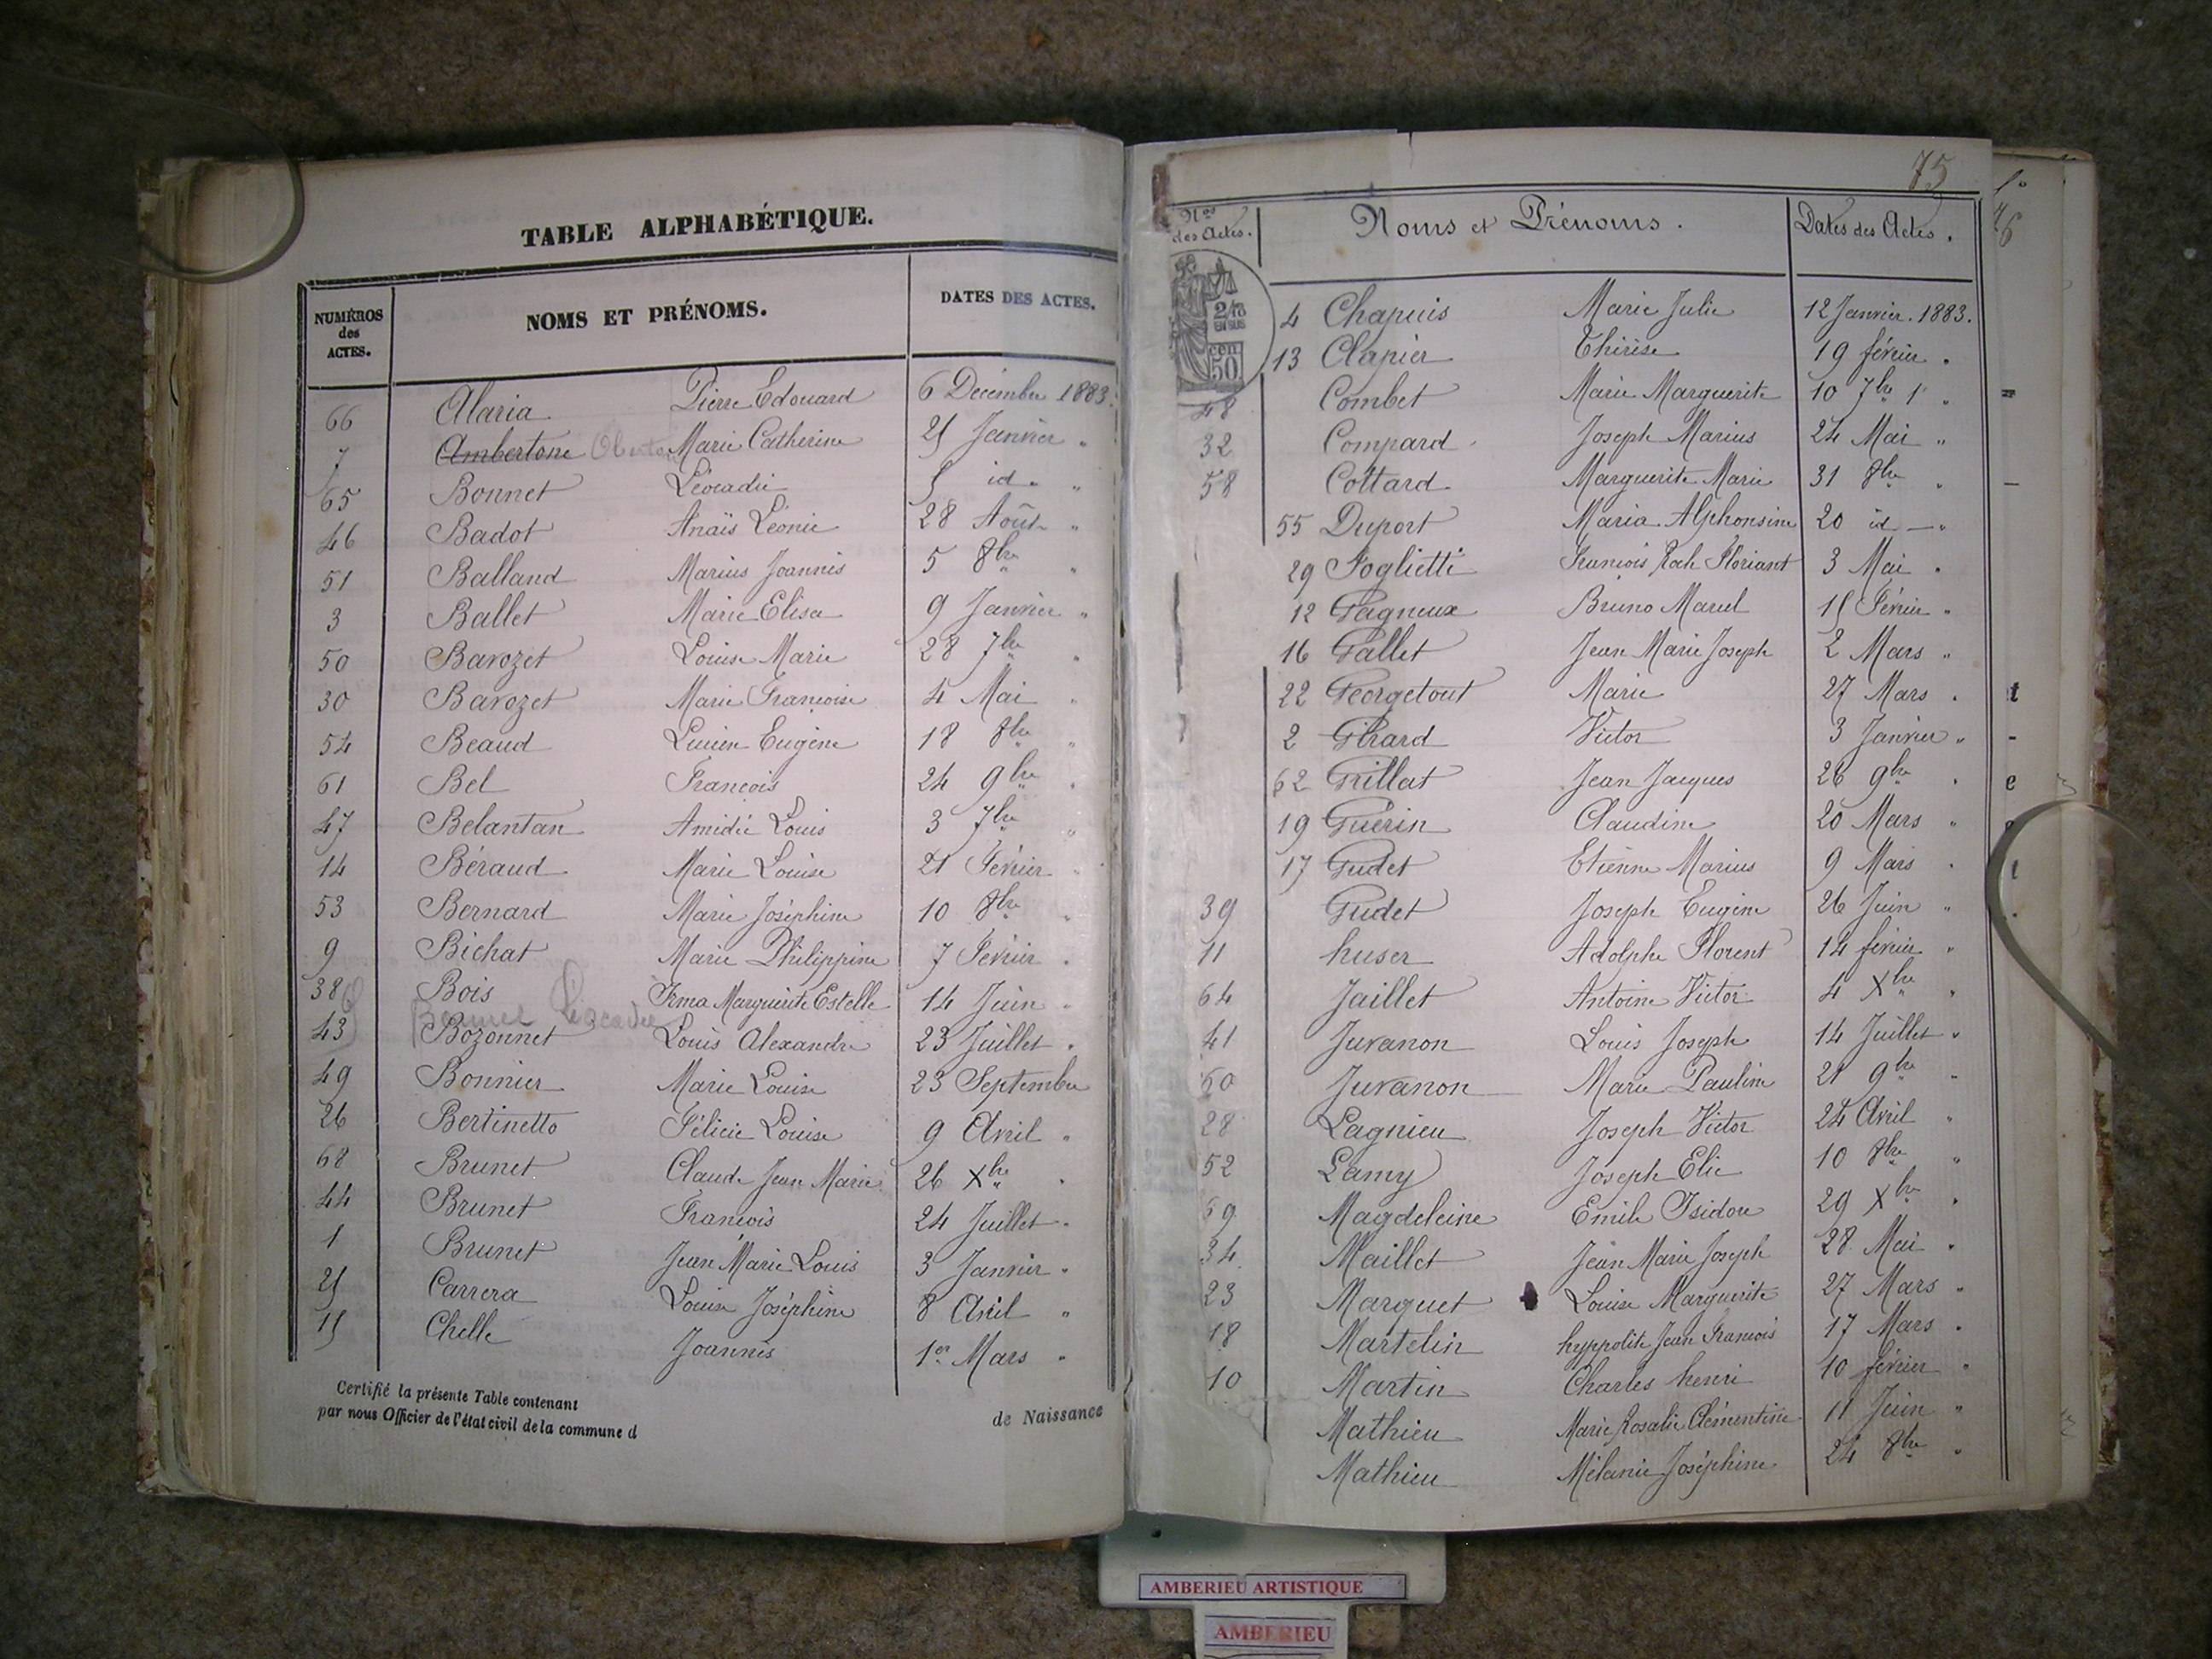 TABLE ALPHABÉTIQUE.
NUMÉROS des ACTES. NOMS ET PRÉNOMS. DATES DES ACTES.
66 Alaria Pierre Edouard 6 Décembre 1883.
7 Ambertone Marie Catherine 25 Janvier "
65 Bonnet Léocadie 5 id. "
46 Badot Anaïs Léonie 28 Août "
51 Balland Marius Joannès 5 8bre "
3 Ballet Marie Elisa 9 Janvier "
50 Barozet Louise Marie 28 7bre "
30 Barozet Marie Françoise 4 Mai "
54 Beaud Lucien Eugène 18 8bre "
61 Bel François 24 9bre "
47 Belantan Amédée Louis 3 7bre "
14 Béraud Marie Louise 21 Février "
53 Bernard Marie Joséphine 10 8bre "
9 Bichat Marie Philippine 7 Février "
38 Bois Irma Marguerite Estelle 14 Juin "
Bonnet Léocadie
43 Bozonnet Louis Alexandre 23 Juillet "
49 Bonnier Marie Louise 23 Septembre
26 Bertinetto Félicie Louise 9 Avril "
68 Brunet Claude Jean Marie 26 Xbre "
44 Brunet François 24 Juillet "
1 Brunet Jean Marie Louis 3 Janvier "
25 Carrera Louise Joséphine 8 Avril "
15 Chelle Joannès 1er Mars "
Certifié la présente Table contenant de Naissance
par nous Officier de l'état civil de la commune d
75
Nos des Actes. Noms et Prénoms. Dates des Actes.
2/10 EN SUS
50 cen
4 Chapuis Marie Julie 12 Janvier. 1883.
13 Clapier Thérèse 19 février "
48 Combet Marie Marguerite 10 7bre "
32 Compard Joseph Marius 24 Mai "
58 Cottard Marguerite Marie 31 8bre "
55 Duport Maria Alphonsine 20 id — "
29 Foglietti François Roch Floriant 3 Mai "
12 Gagneux Bruno Marcel 15 Février "
16 Gallet Jean Marie Joseph 2 Mars "
22 Georgetout Marie 27 Mars "
2 Girard Victor 3 Janvier "
62 Grillat Jean Jacques 26 9bre "
19 Guérin Claudine 20 Mars "
17 Gudet Etienne Marius 9 Mars "
39 Gudet Joseph Eugène 26 Juin "
11 huser Adolphe Florent 14 février "
64 Jaillet Antoine Victor 4 Xbre "
41 Juvanon Louis Joseph 14 Juillet "
60 Juvanon Marie Pauline 21 9bre "
28 Lagnieu Joseph Victor 24 Avril "
52 Lamy Joseph Elie 10 8bre "
69 Magdeleine Emile Isidore 29 Xbre "
34 Maillet Jean Marie Joseph 28 Mai "
23 Marquet Louise Marguerite 27 Mars "
18 Martelin hyppolite Jean François 17 Mars "
10 Martin Charles henri 10 février "
Mathieu Marie Rosalie Clémentine 11 Juin "
Mathieu Mélanie Joséphine 24 8bre "
AMBERIEU ARTISTIQUE
AMBERIEU